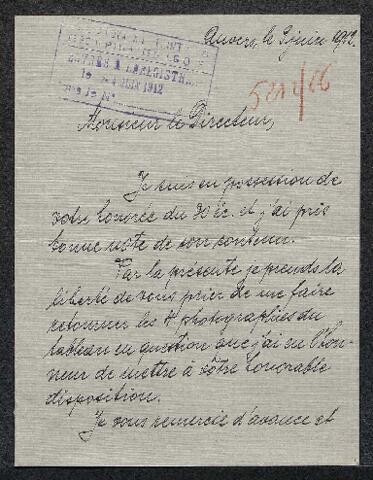 Anvers, le 3 juin 1912.
ENTRÉE & ENREGISTR
le 4 JUIN 1912
5214/66
Monsieur le Directeur,
Je suis en possession de
votre honorée du 30 éc. et j'ai pris
bonne note de son contenu.
Par la présente je prends la
liberté de vous prier de me faire
retourner les 4 photographies du
tableau en question que j'ai eu l'hon-
neur de mettre à vôtre honorable
disposition.
Je vous remercie d'avance et